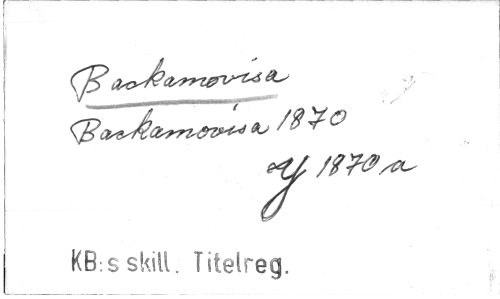 Backamovisa
Backamovisa 1870
Y 1870 a
KB:s skill. Titelreg.